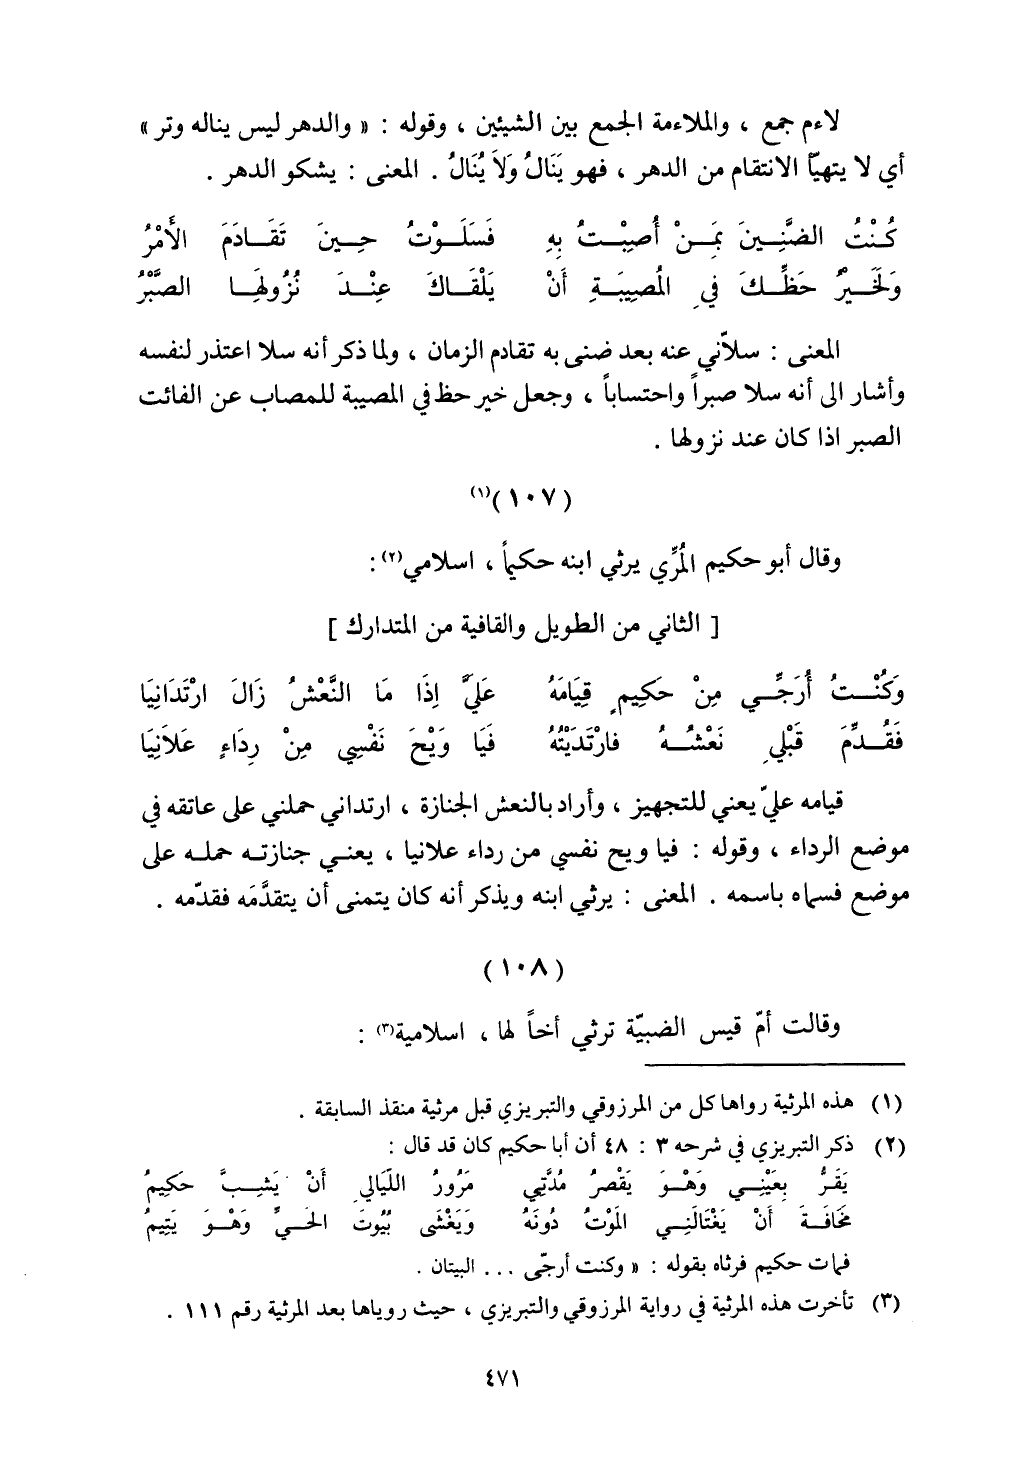 لاءم جمع ، والملاءمة الجمع بين الشيئين ، وقوله : « والدهر ليس يناله وتر »
أي لا يتهيّأ الانتقام من الدهر ، فهو يَنَالُ وَلاَ يُنَالُ . المعنى : يشكو الدهر .
كُنْتُ الضَّنِينَ بَمَنْ أُصِبْتُ بِهِ فَسَلَوْتُ حِينَ تَقَادَمَ الأَمْرُ
وَلَخَيْرُ حَظِّكَ فِي المُصِيبَةِ أَنْ يَلْقَاكَ عِنْدَ نُزُولِهَا الصَّبْرُ
المعنى : سلاّني عنه بعد ضنى به تقادم الزمان ، ولما ذكر أنه سلا اعتذر لنفسه
وأشار الى أنه سلا صبراً واحتساباً ، وجعل خير حظ في المصيبة للمصاب عن الفائت
الصبر اذا كان عند نزولها .
(١٠٧)(١)
وقال أبو حكيم المُرِّي يرثي ابنه حكيماً ، اسلامي(٢) :
[ الثاني من الطويل والقافية من المتدارك ]
وَكُنْتُ أُرَجِّي مِنْ حَكِيمٍ قِيَامَهُ عَلَيَّ إِذَا مَا النَّعْشُ زَالَ ارْتَدَانِيَا
فَقُدِّمَ قَبْلِي نَعْشُهُ فارْتَدَيْتُهُ فَيَا وَيْحَ نَفْسِي مِنْ رِدَاءٍ عَلَانِيَا
قيامه عليّ يعني للتجهيز ، وأراد بالنعش الجنازة ، ارتداني حملني على عاتقه في
موضع الرداء ، وقوله : فيا ويح نفسي من رداء علانيا ، يعني جنازته حمله على
موضع فسماه باسمه . المعنى : يرثي ابنه ويذكر أنه كان يتمنى أن يتقدَّمَه فقدّمه .
(١٠٨)
وقالت أمّ قيس الضبيّة ترثي أخاً لها ، اسلامية(٣) :
(١) هذه المرثية رواها كل من المرزوقي والتبريزي قبل مرثية منقذ السابقة .
(٢) ذكر التبريزي في شرحه ٣ : ٤٨ أن أبا حكيم كان قد قال :
يَقَرُّ بِعَيْنِي وَهْوَ يَقْصرُ مُدَّتِي مَرُورُ اللَّيَالِي أَنْ يَشِبَّ حَكِيمُ
مَخَافَةَ أَنْ يَغْتَالَنِي المَوْتُ دُونَهُ وَيَغْشَى بُيُوتَ الحَيِّ وَهْوَ يَتِيمُ
فمات حكيم فرثاه بقوله : « وكنت أرجّى ... البيتان .
(٣) تأخرت هذه المرثية في رواية المرزوقي والتبريزي ، حيث روياها بعد المرثية رقم ١١١ .
٤٧١